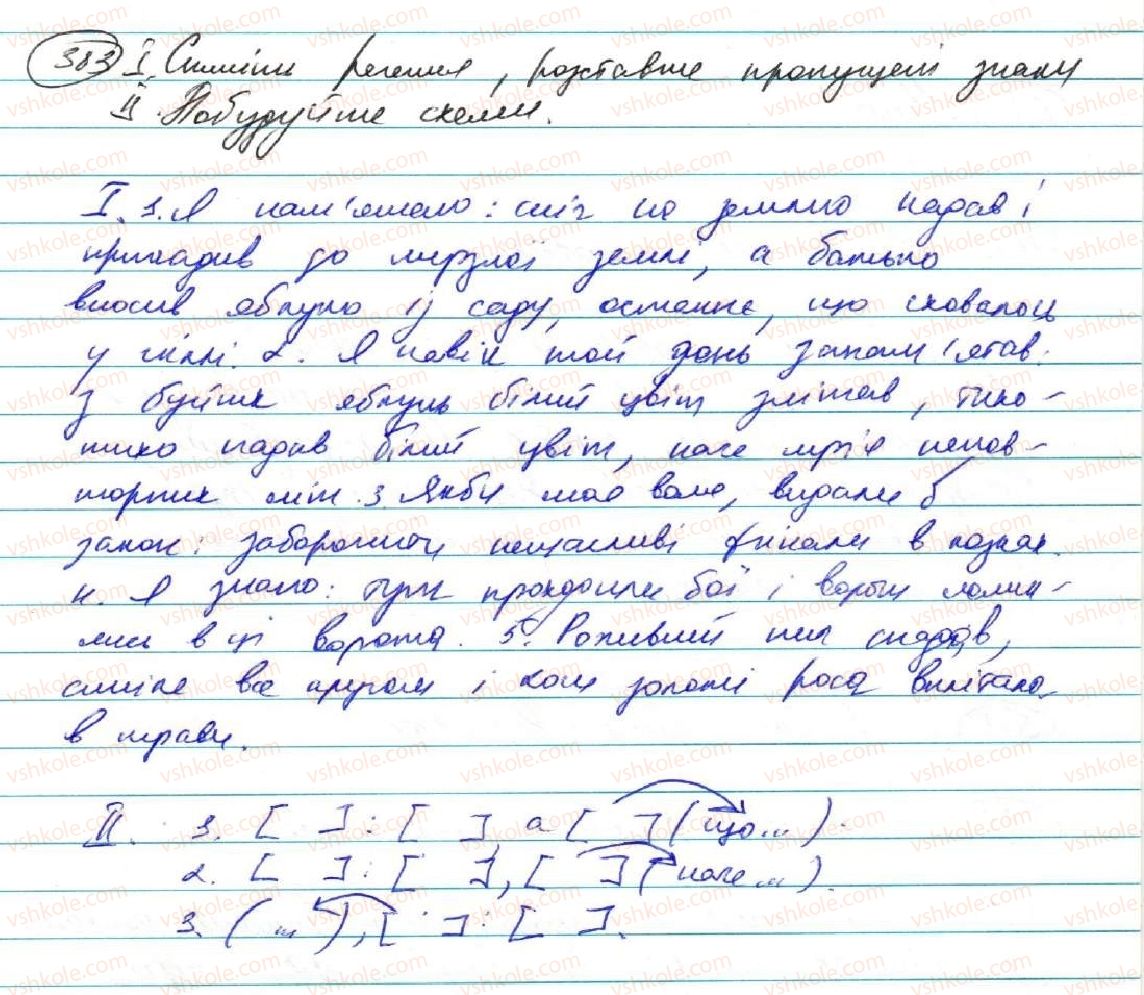 383 I. Спишіть речення, розставте пропущені знаки
II. Побудуйте схеми.
I. 1. Я пам'ятаю: сніг на землю падав і
прикипів до мерзлої землі, а батько
вносив яблуко із саду, останнє, що сховалось
у гіллі. 2. Я навік той день запам'ятав:
з буйних яблунь білий цвіт злітав, тихо-
тихо падав білий цвіт, наче мрія непов-
торних літ. 3. Якби моя воля, видала б
закон: заборонити нещасливі фінали в казках.
4. Я знаю: тут проходили бої і вороги ломи-
лись в ці ворота. 5. Рожевий пил спадав,
синіло все кругом і коси золоті роса вплітала
в трави.
II. 1. [ ]: [ ], а [ ] (що...).
2. [ ]: [ ], [ ] (наче...).
3. (...), [ ]: [ ].